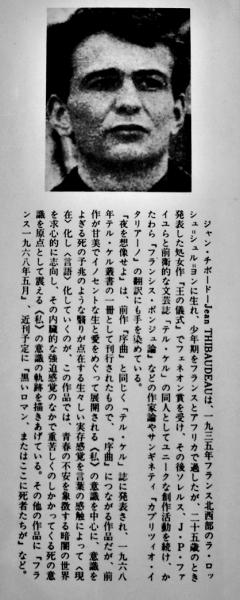 ジャン・チボードー Jean THIBAUDEAU は、一九三五年フランス北西部のラ・ロッ
シュ=シュル=ヨンに生れ、少年期をフランスとアフリカで過したが、二十五歳のとき
発表した処女作『王の儀式』でフェネオン賞を受け、その後ソレルス、J・P・ファ
イユらと前衛的な文芸誌『テル・ケル』の同人としてユニークな創作活動を続け、か
たわら『フランシス・ポンジュ論』などの作家論やサンギネティ『カプリツィオ・イ
タリアーノ』の翻訳にも手を染めている。
『夜を想像せよ』は、前作『序曲』と同じく『テル・ケル』誌に発表され、一九六八
年テル・ケル叢書の一冊として刊行されたもので、『序曲』につながる作品だが、前
作が甘美でイノセントな生と愛をめぐって展開される〈私〉の意識を中心に、意識を
よぎる死の予兆のような翳りが点在する生々しい実存感覚を言葉の感触によって〈現
在〉化し〈言語〉化していくのが、この作品では、青春の不安を象徴する暗闇の世界
を求心的に志向し、その内臓的な強迫感覚のなかで重苦しくのしかかってくる死の意
識を原点として震える〈私〉の意識の軌跡を描きあげている。その他の作品に『フラ
ンス一九六八年五月』、近刊予定に『黒いロマン、またはここに死者たちが』など。